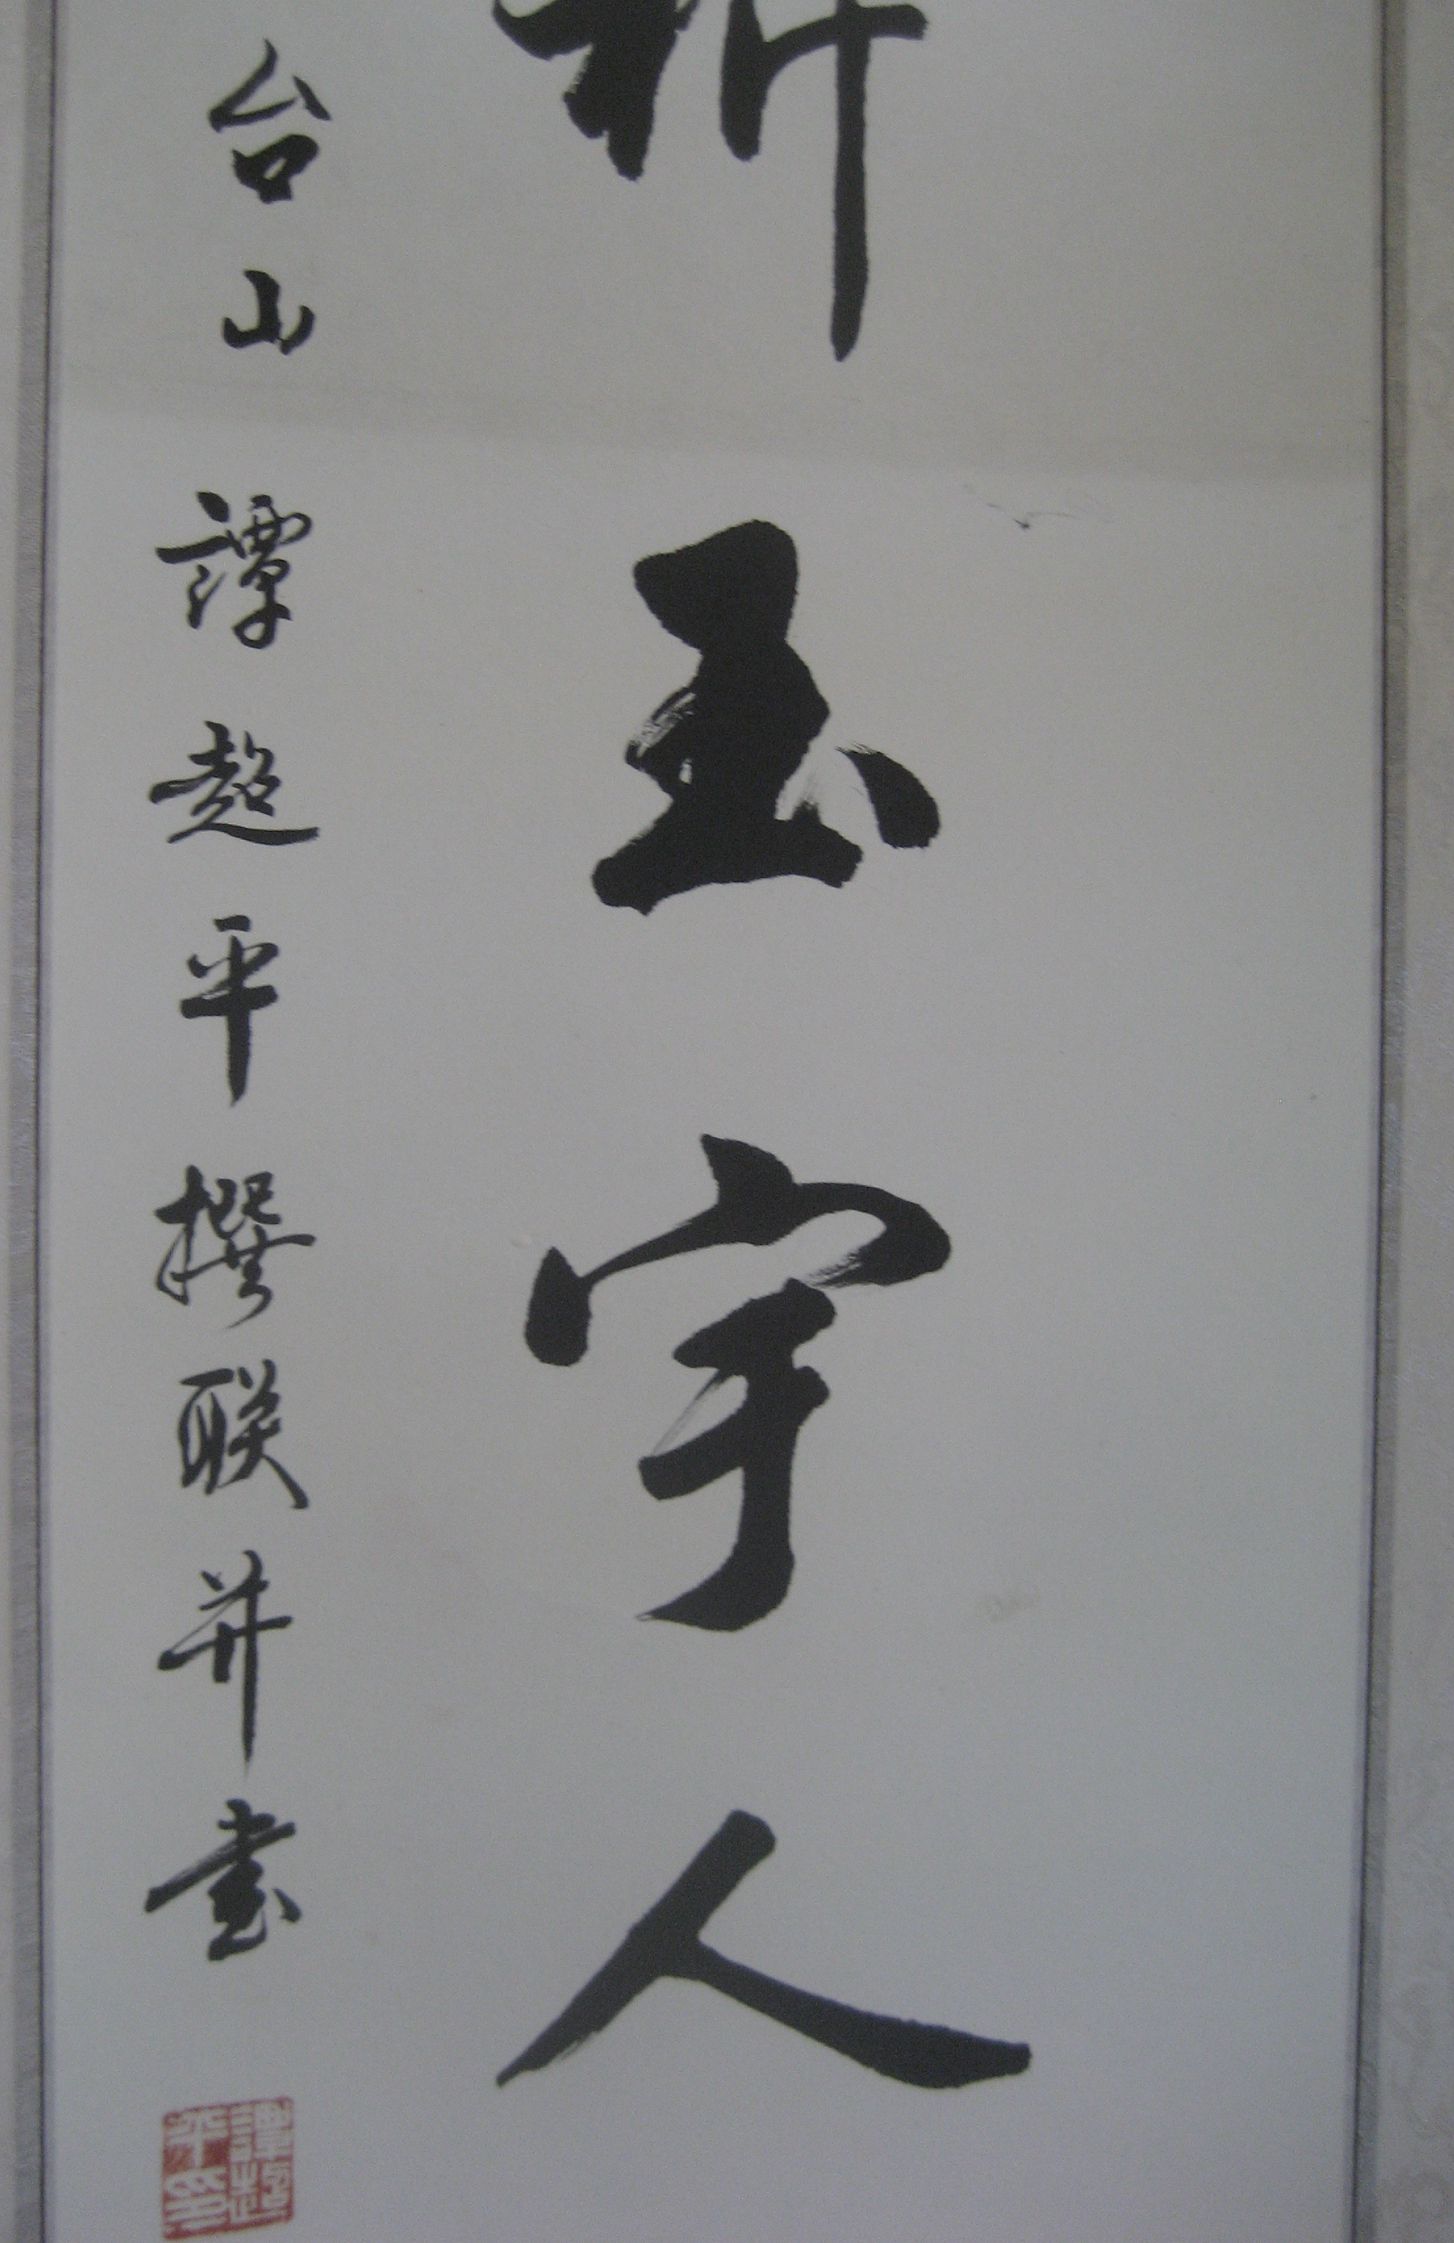 玉宇人
台山譚超平撰联并書
譚超平印